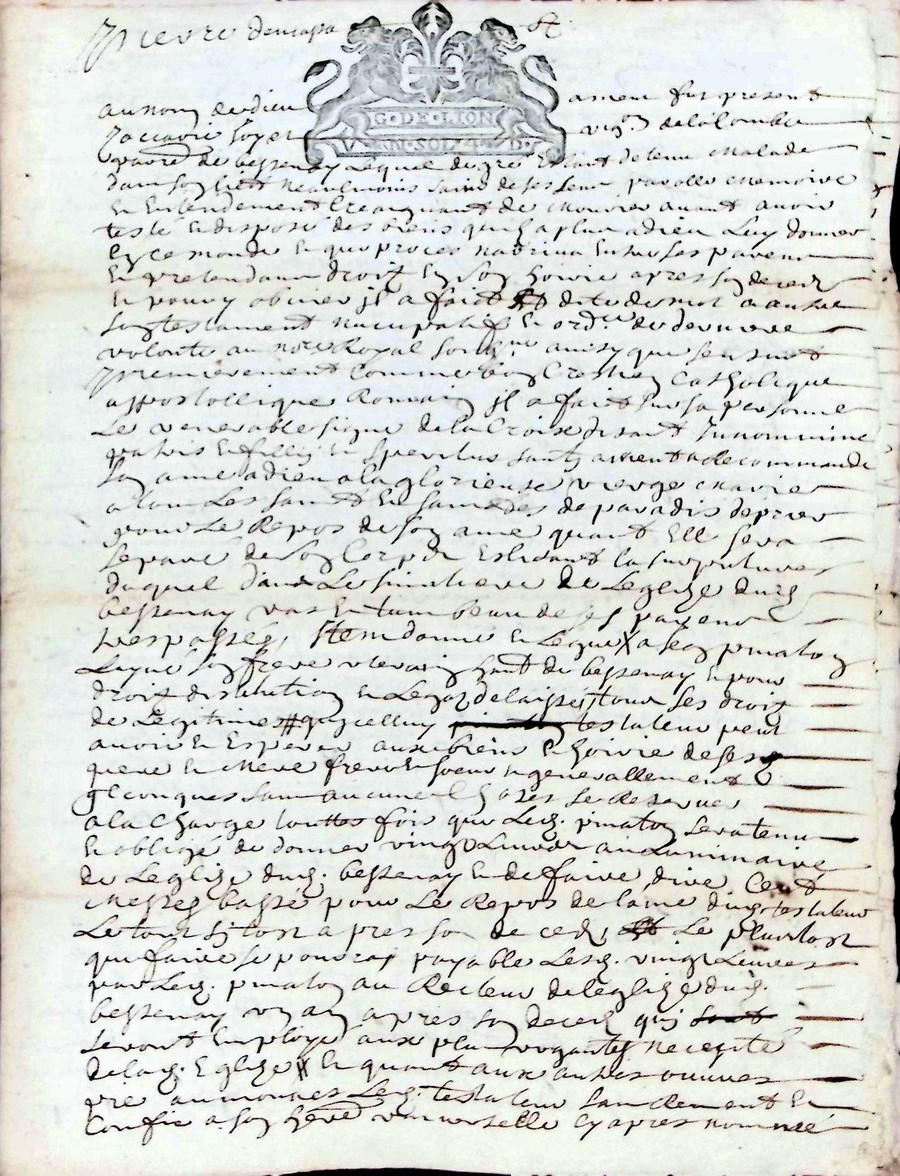 Pierre
G·DE·LION
VN·SOL·4·D·
au nom de dieu amen fut present
Zaccarie Loyet de la Combe
de bessenay Lequel de gré Estant detenu malade
dans son lict neaulmoins sain de ses sens parolle memoire
et Entendement Creignant de mourir avant avoir
teste et dispose des biens quil a plu a dieu Luy donner
En ce monde et que proces Entre ses parens
Et pretendans droit En son hoirie apres son deces
Et pour y obvier jl a faict et dicte de mot a autre
son testament nuncupatif et ordre de derniere
volonte au not.re Royal soubz.ne ainsy que sensuit
Premierement comme bon Crestien Catholique
appostollique Romain jl a faict sur sa personne
Le venerable signe de la Croix disant In nomine
patris Et filly et spiritus santy amen a Recommandé
son ame a dieu a la glorieuse vierge marie
a tous Les saincts Et sainctes de paradis de prier
pour Le Repos de son ame quant Ell sera
separé de son Corps Eslisant la sepulture
duquel dans Le simtiere de Leglize dud.
bessenay vas Et tumbeau de ses parens
trespasses, Item donne et Legue a
son frere hant de bessenay et pour
droit distitution et Legat delaisse tous ses droit
de Legitime # qu icelluy testateur peut
avoir et Esperer aux biens et hoirie de ses
pere et mere frere et soeur et generallement
qlconques sans aucune Choses se Reserver
a la Charge touttes fois que Led. sera tenu
Et obligé de donner vingt Livres au Luminaire
de Leglize dud. bessenay et de faire dire Cent
messes basse pour Le Repos de lame dud. testateur
Le tout sy tost apres son deces Le plustost
que faire se pourra payable Lesd. vingt Livres
par Led. au Recteur de leglize dud.
bessenay un an apres son deces qui
seront Employé aux plus urgantes necessité
de lad. Eglize # Et quant aux autres œuvres
pie aumones Led. testateur sen demet et
confie a son heré universelle cy apres nommé